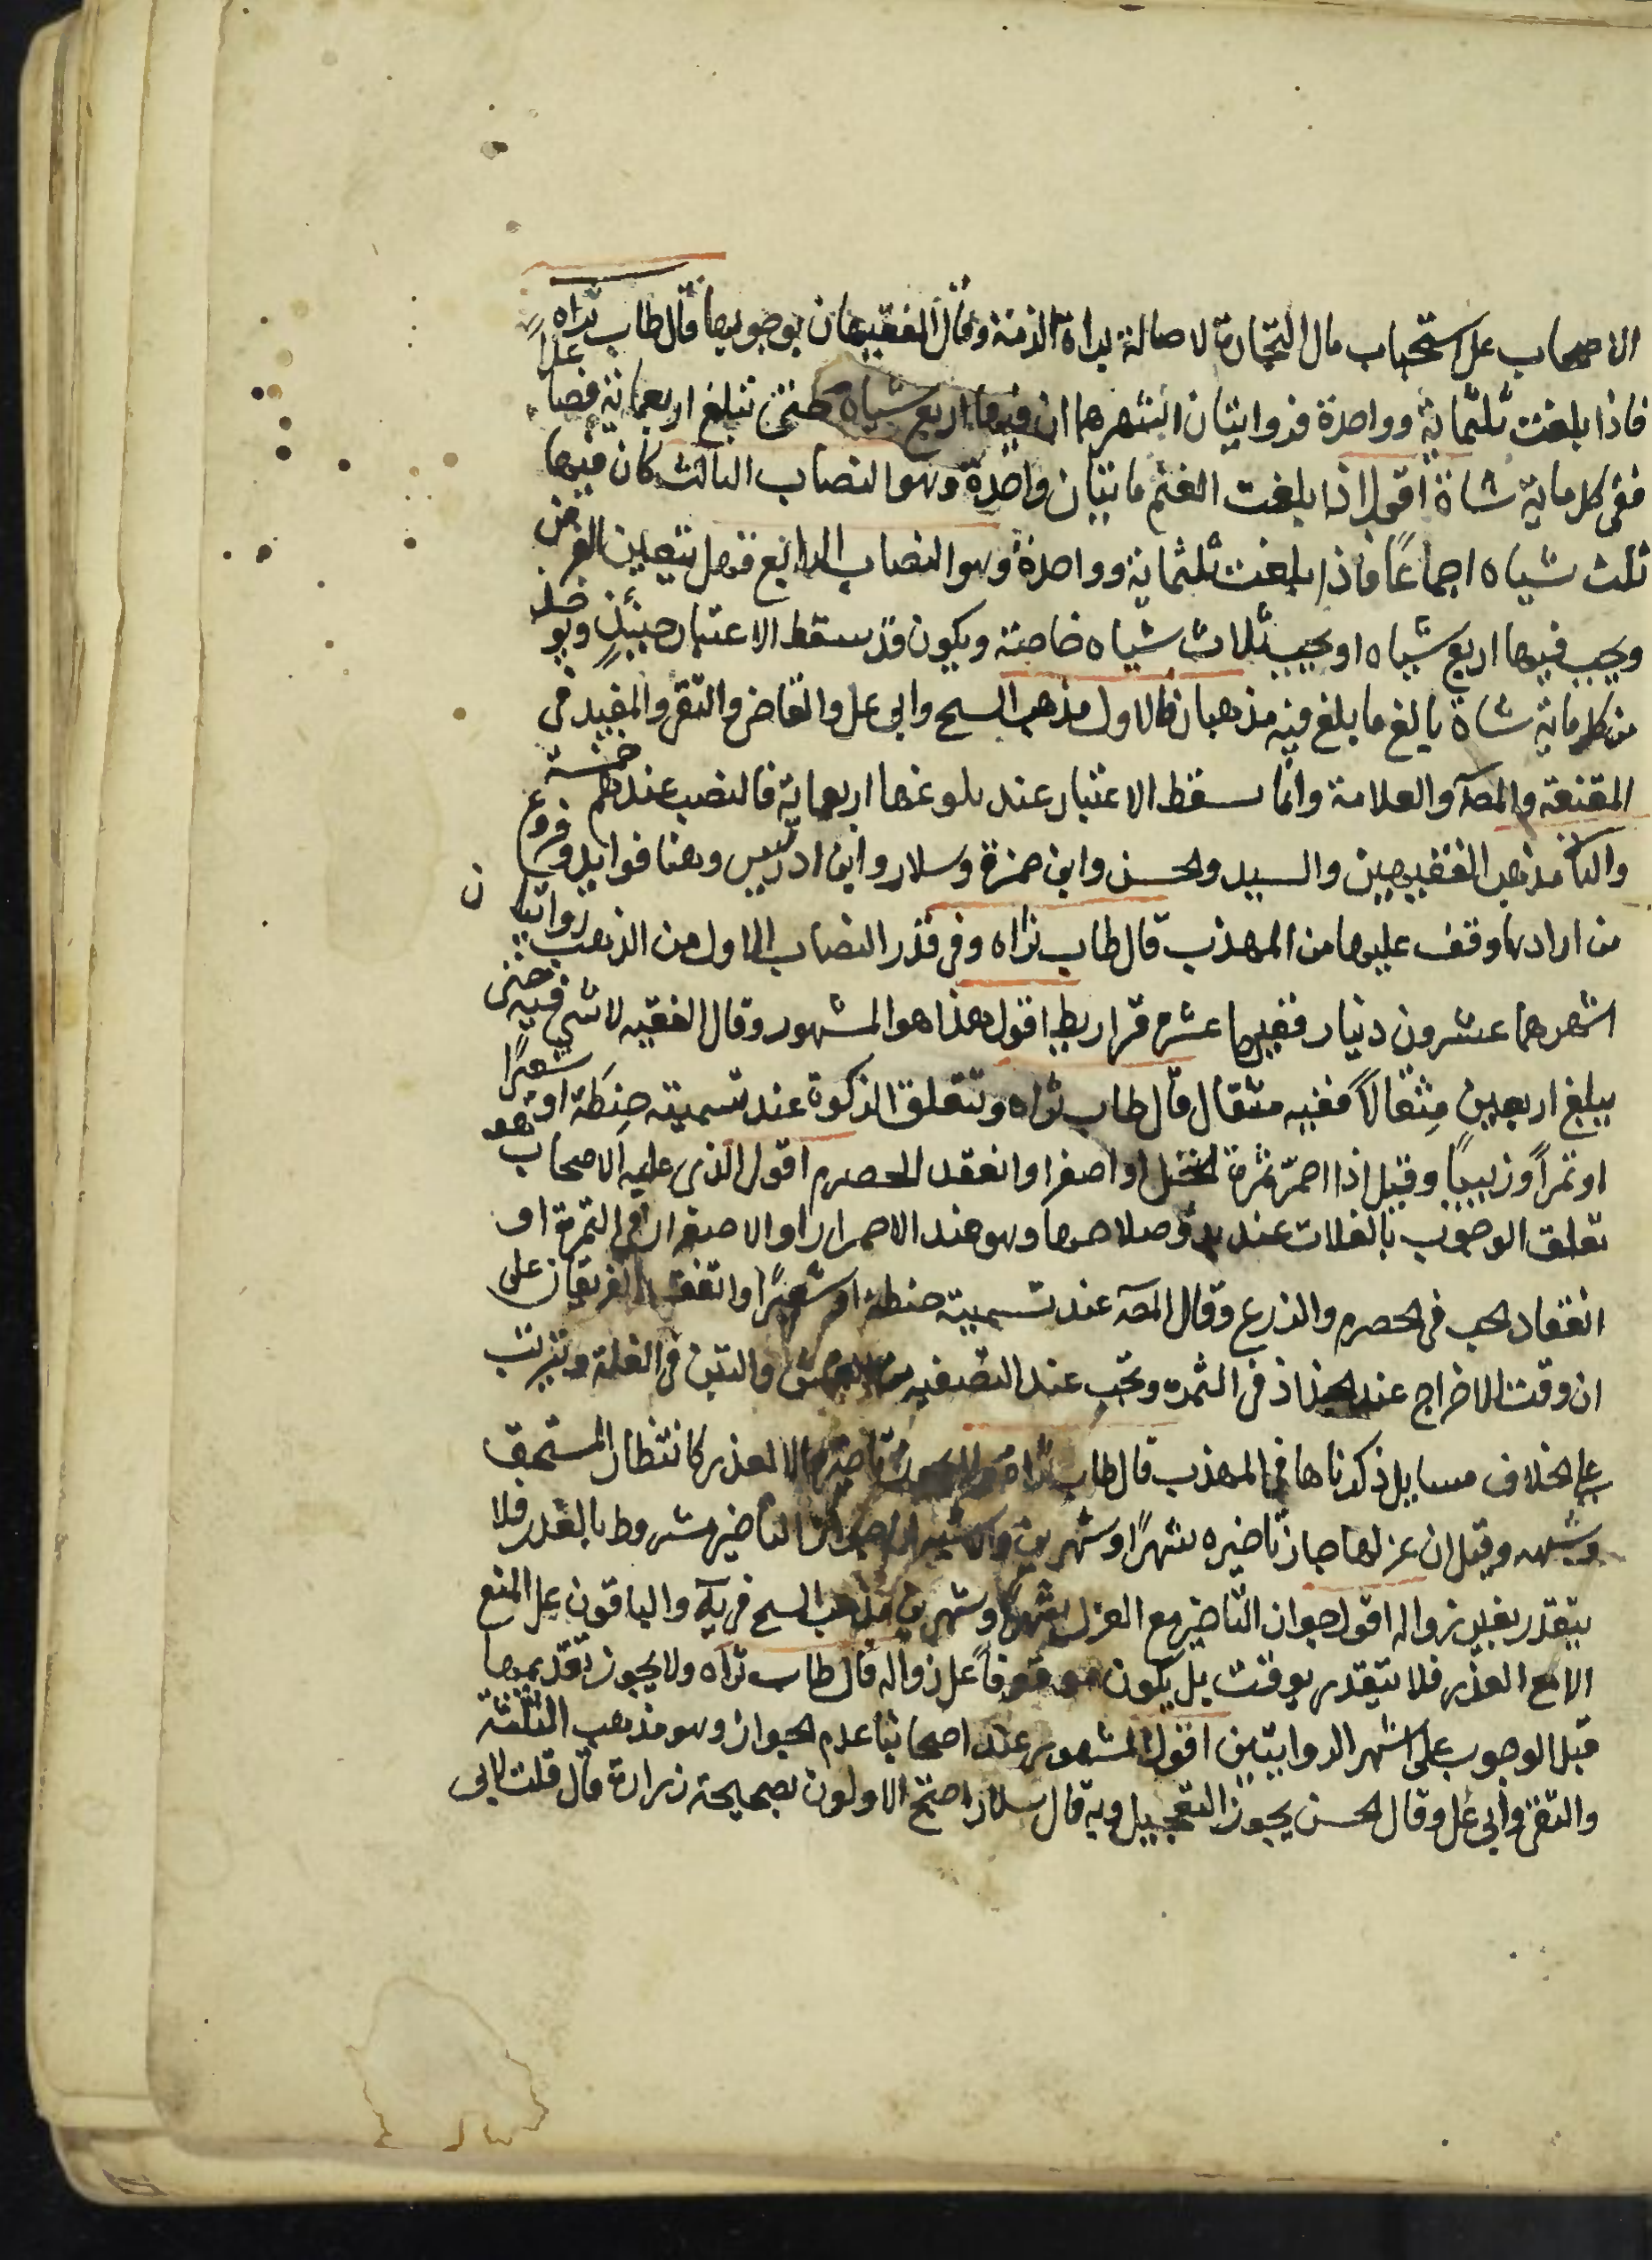 الاصحاب على استحباب مال التجارة لاصالة براة الذمة وقال الفقيهان بوجوبها قال طاب ثراه
فاذا بلغت ثلثمائة وواحدة فروايتان اشهرهما ان فيها اربع شياه حتى تبلغ اربعمائة فصاعدا
ففى كل ماية شاة اقول اذا بلغت الغنم مايتان واحدة وهو النصاب الثالث كان فيها
ثلث شياه اجماعًا فاذا بلغت ثلثمائة وواحدة وهو النصاب الرابع فهل يتغير الفرض
ويجب فيها اربع شياه او يجب ثلاث شياه خاصة ويكون قد سقط الاعتبار حينئذٍ ويوخذ
من كل ماية شاة بالغ ما بلغ فيه مذهبان فالاول مذهب الشيخ وابى على والقاضى والتقى والمفيد فى
المقنعة والمصـ والعلامة وانما يسقط الاعتبار عند بلوغها اربعماية فالنصب عندهم خمسة
والثانى مذهب الفقيهين والسيد والحسن وابن حمزة وسلار وابن ادريس وهنا فوايد وفروع
من ارادها وقف عليها من المهذب قال طاب ثراه وفى قدر النصاب الاول من الذهب روايتان
اشهرهما عشرون دينار ففيها عشرة قراريط اقول هذا هو المشهور وقال الفقيه لا شى فيه حتى
يبلغ اربعين مثقالاً ففيه مثقال قال طاب ثراه وتتعلق الزكوة عند تسميته حنطة او شعيرًا
او تمراً وزبيبًا وقيل اذا احمرّ ثمرة النخل او اصفرا وانعقد الحصرم اقول الذى عليه الاصحاب هو
تعلق الوجوب بالغلات عند بدو صلاحها وهو عند الاحمرار او الاصفرار فى التمرة او
انعقاد الحب فى الحصرم والزرع وقال المصـ عند تسميته حنطة او شعيرًا واتفق الفريقان على
ان وقت الاخراج عند الجذاذ فى الثمره وتجب عند التصفيه من القش والتبن فى الغلة ويترتب
على الخلاف مسايل ذكرناها فى المهذب قال طاب ثراه تاخيرها الا لعذر كانتظار المستحق
وشبهه وقيل ان عزلها جاز تاخيره شهرًا وشهرين والاشبه ان جواز التاخير مشروط بالعذر فلا
يتقدر بغير زواله اقول جواز التاخير مع العزل شهرًا وشهرين مذهب الشيخ فى يـه والباقون على المنع
الا مع العذر فلا يتقدر بوقت بل يكون موقوفاً على زواله قال طاب ثراه ولا يجوز تقديمها
قبل الوجوب على اشهر الروايتين اقول المشهور عند اصحابنا عدم الجواز وهو مذهب الثلثة
والتقى وابى على وقال الحسن يجوز التعجيل وبه قال سلار احتج الاولون بصحيحة زرارة قال قلت لابى